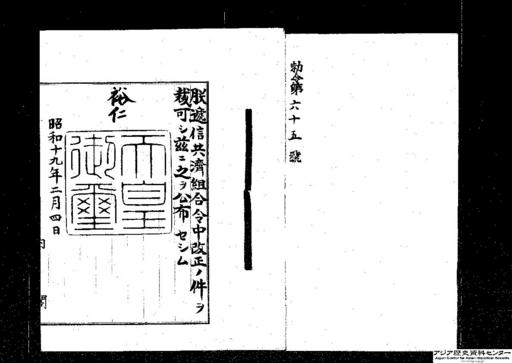 勅令第六十五號
朕遞信共濟組合令中改正ノ件ヲ
裁可シ茲ニ之ヲ公布セシム
裕仁
天皇
御璽
昭和十九年二月四日
アジア歴史資料センター
Japan Center for Asian Historical Records